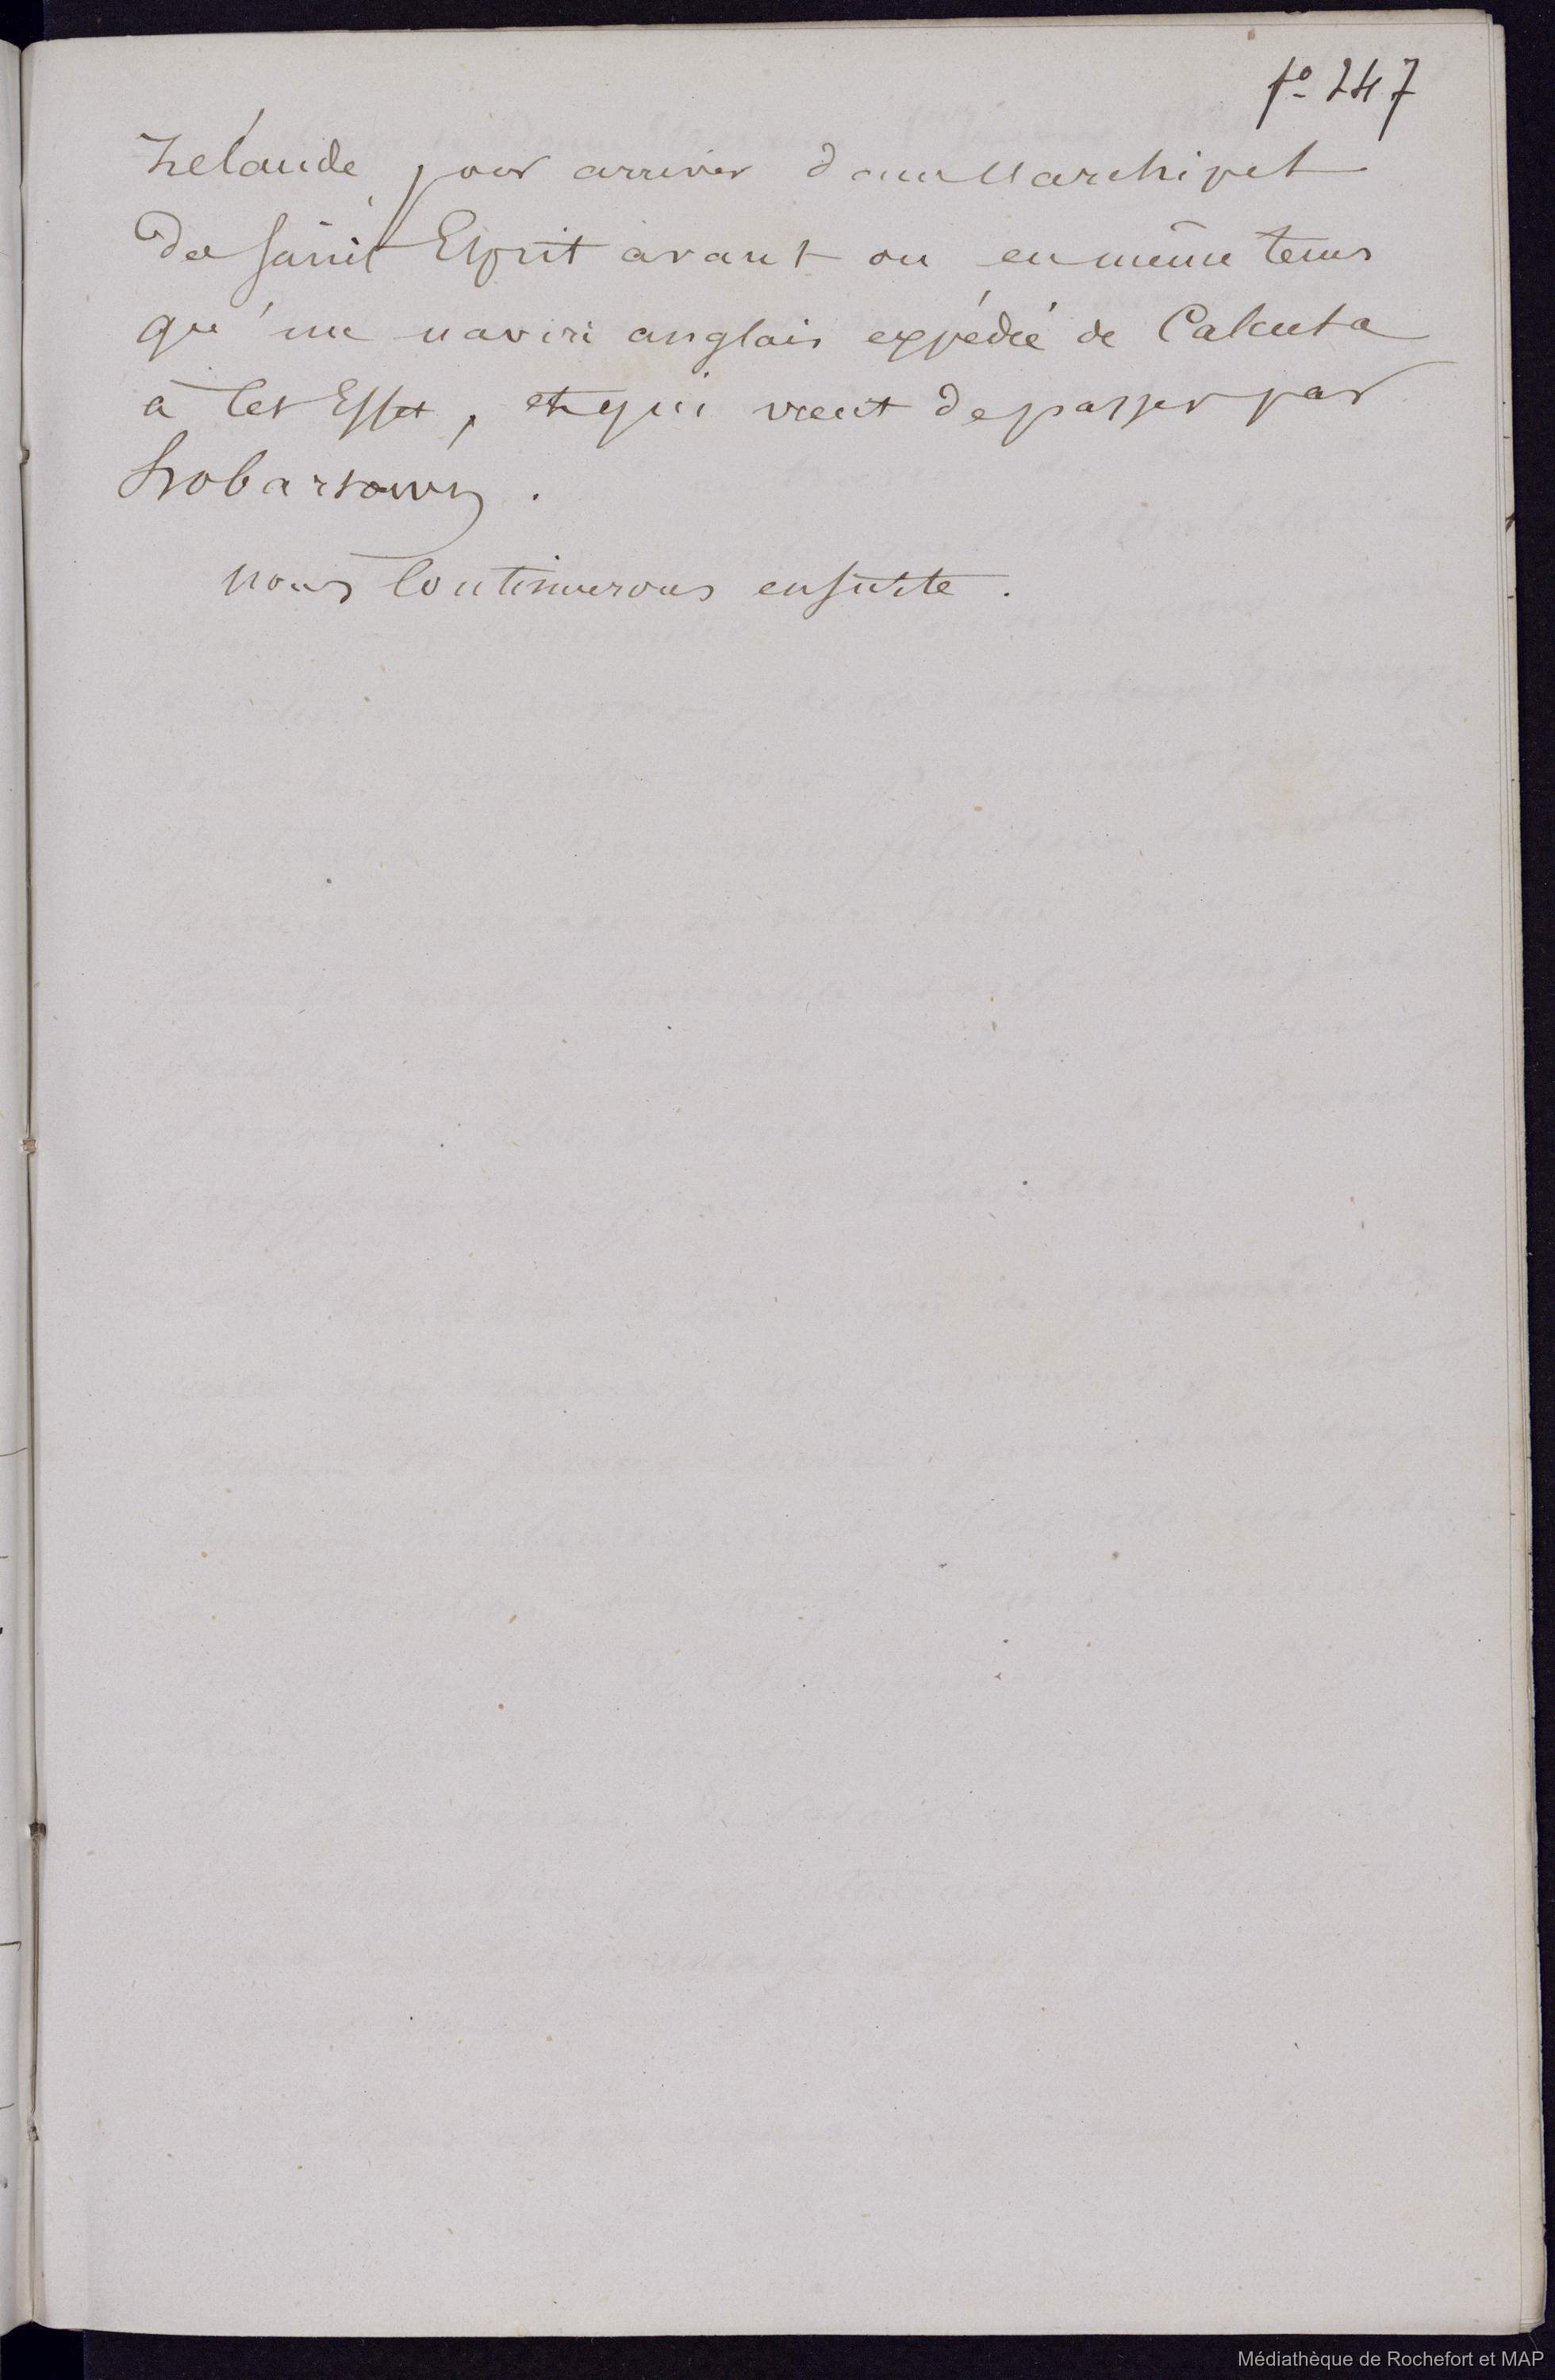 fo 247
Zélande, pour arriver dans l'archipel
du Saint Esprit avant ou en même tems
qu'un navire anglais expédié de Calcuta
à cet Effet, et qui vient de passer par
hobartown.
nous Continuerons ensuite.
Médiathèque de Rochefort et MAP